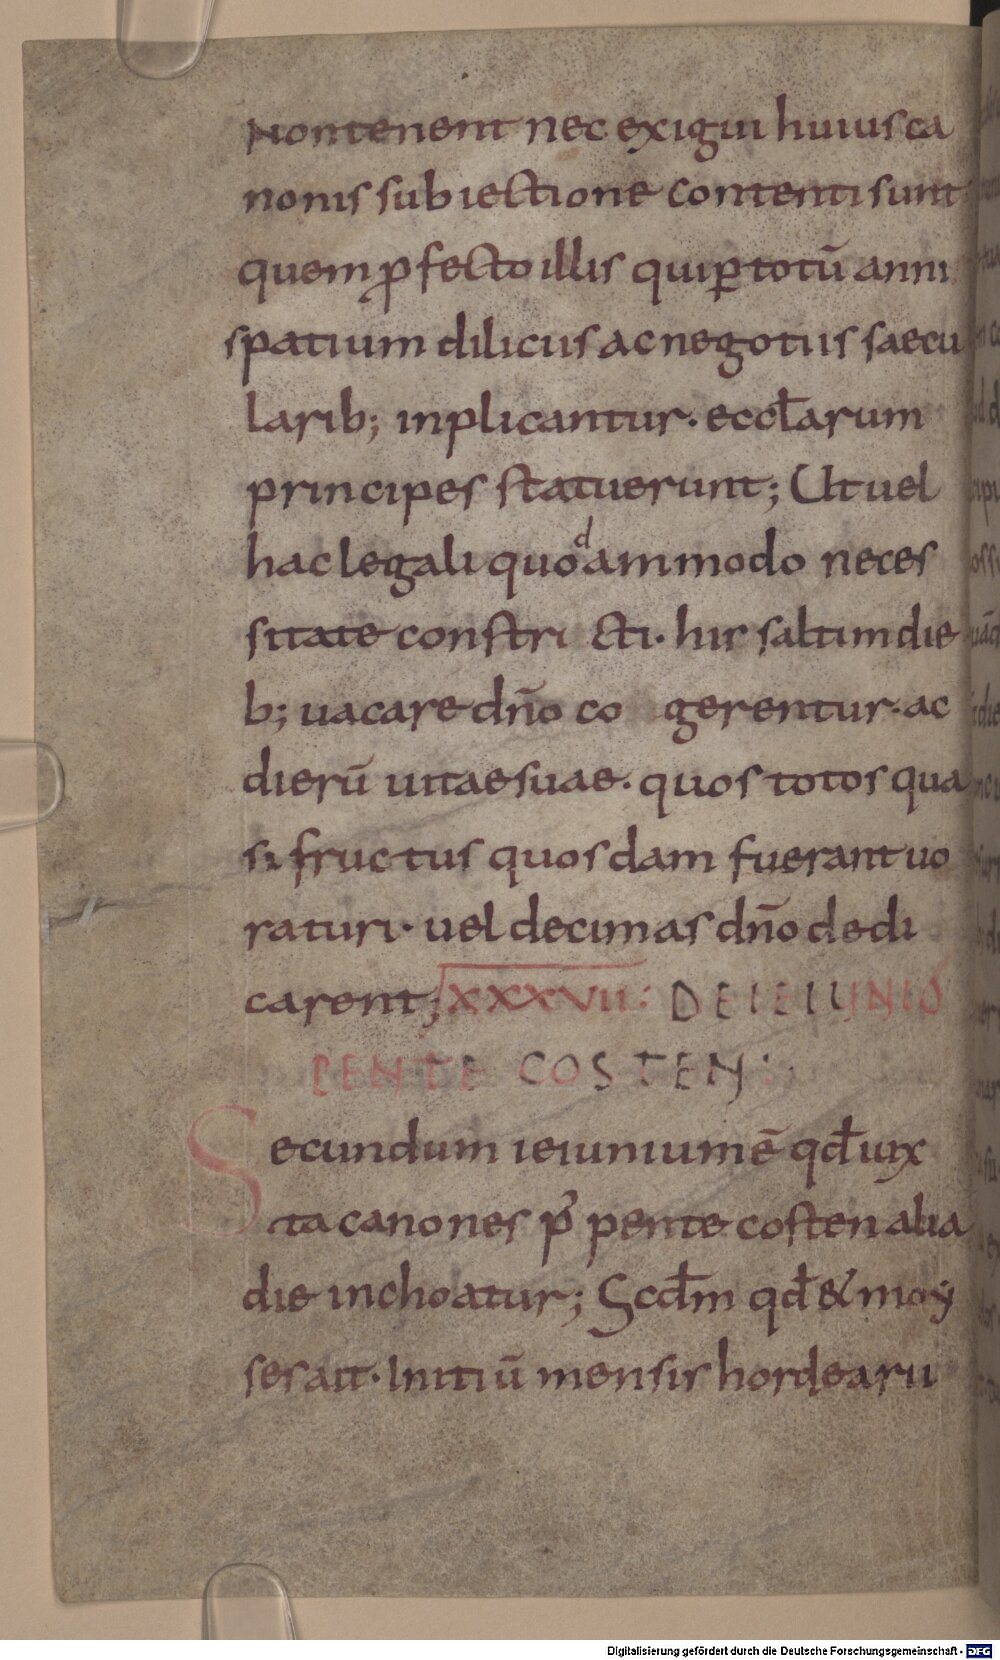 Nontenent nec exigui huius ca
nonis subiectione contenti sunt
quem ꝓfecto illis qui ꝑ totū anni
spatium dilicus ac negotiis saecu
larib; inplicantur · eccłarum
principes statuerunt; Ut uel
hac legali quodammodo neces
sitate constri cti · hir saltim die
b; uacare dn̄o co gerentur · ac
dierū uitae suae · quos totos qua
si fructus quosdam fuerant uo
raturi · uel decimas dn̄o dedi
carent; XXXVII: DE IEIUNIO
PENTE COSTEN:
Secundum ieiunium ē qđ iux
ta canones p̄ pentecosten alia
die inchoatur; Scđm qđ & moy
ses ait · Initiū mensis hordearu
Digitalisierung gefördert durch die Deutsche Forschungsgemeinschaft - DFG